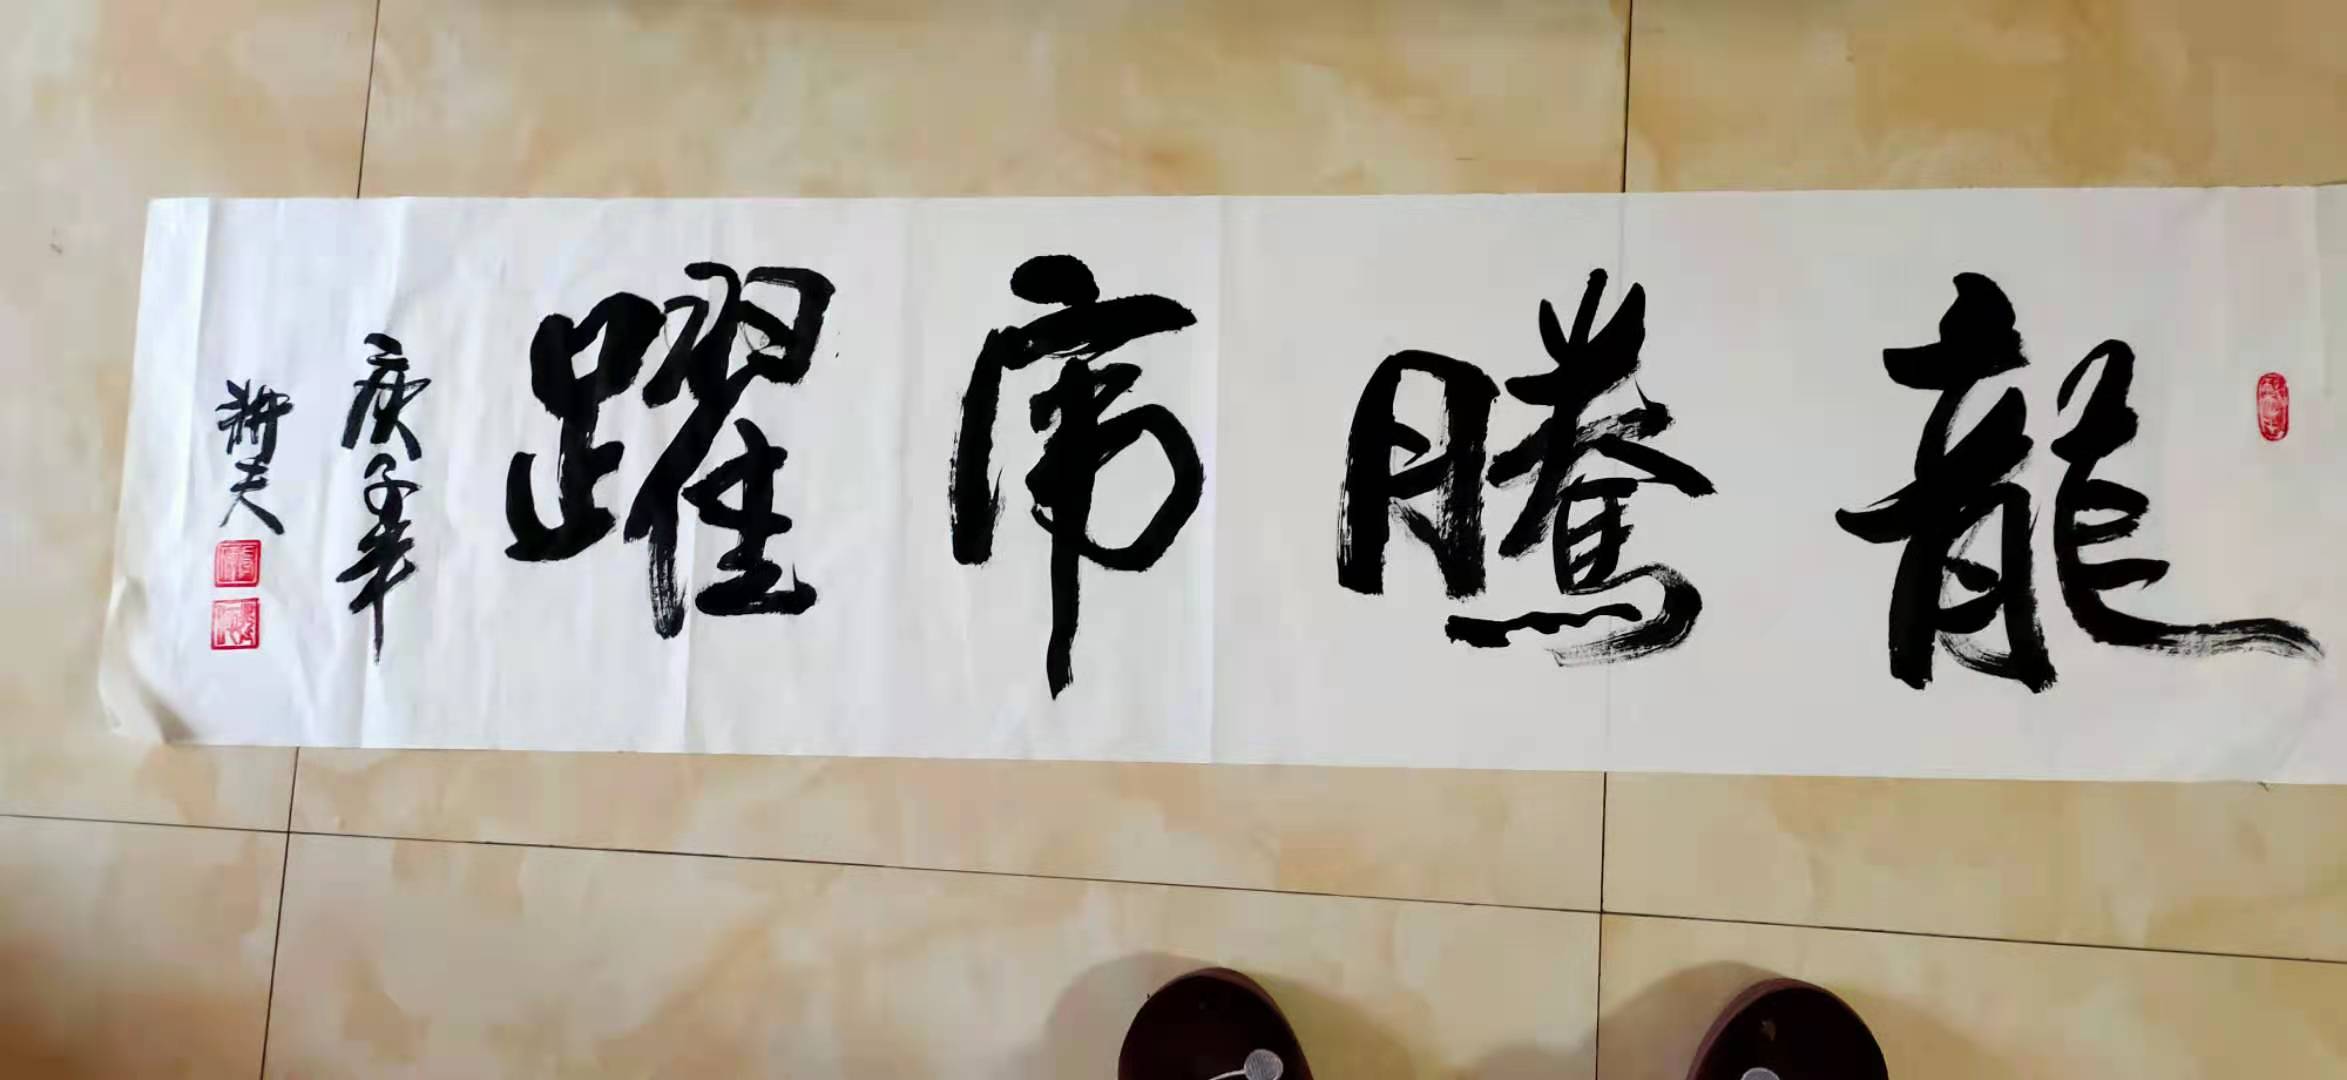 龍騰虎躍
庚子年
耕夫